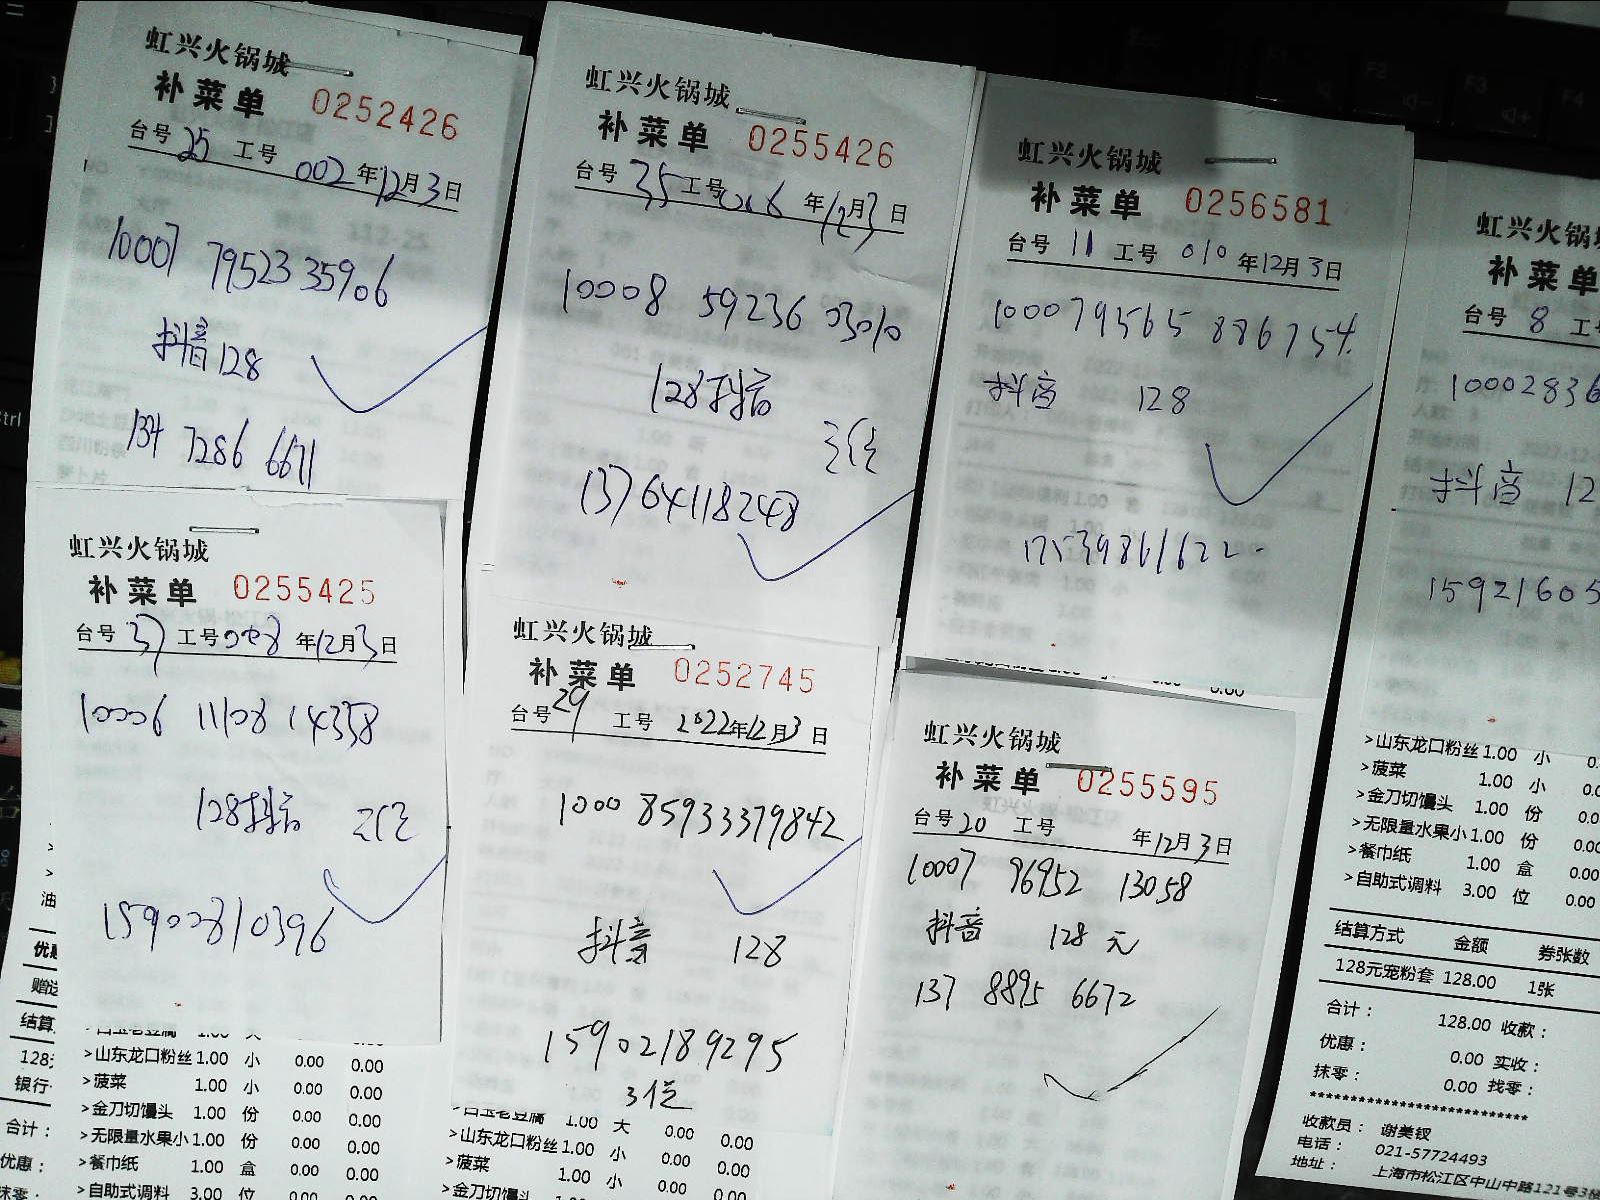 虹兴火锅城
补菜单 0252426
台号 25 工号 002 年12月3日
10007 79523 35906
抖音128
134 7286 6671
虹兴火锅城
补菜单 0255426
台号 35 工号 006 年12月3日
10008 59236 03010
128抖音
三位
13764118248
虹兴火锅城
补菜单 0256581
台号 11 工号 010 年12月3日
100079565 886754.
抖音 128
17539861622
虹兴火锅
补菜单
台号 8
10002836
抖音 12
15921605
虹兴火锅城
补菜单 0255425
台号 37 工号 008 年12月3日
10006 11108 14358
128抖音 三位
15900810396
虹兴火锅城
补菜单 0252745
台号 29 工号 2022年12月3日
1000 85933379842
抖音 128
15902189295
3位
虹兴火锅城
补菜单 0255595
台号 20 工号 年12月3日
10007 96952 13058
抖音 128元
137 8895 6672
>山东龙口粉丝 1.00 小
>菠菜 1.00 小 0.0
>金刀切馒头 1.00 份 0.0
>无限量水果小 1.00 份 0.00
>餐巾纸 1.00 盒 0.00
>自助式调料 3.00 位 0.00
结算方式 金额 券张数
128元宠粉套 128.00 1张
合计: 128.00 收款:
优惠: 0.00 实收:
抹零: 0.00 找零:
****************************
收款员: 谢美钗
电话: 021-57724493
地址: 上海市松江区中山中路121号3楼
油
优惠
赠送
结算
128元
银行
合计:
优惠:
抹零:
>白玉老豆腐 1.00 大 0.00 0.00
>山东龙口粉丝 1.00 小 0.00 0.00
>菠菜 1.00 小 0.00 0.00
>金刀切馒头 1.00 份 0.00 0.00
>无限量水果小 1.00 份 0.00 0.00
>餐巾纸 1.00 盒 0.00 0.00
>自助式调料 3.00 位 0.00 0.00
>白玉老豆腐 1.00 大 0.00 0.00
>山东龙口粉丝 1.00 小 0.00 0.00
>菠菜 1.00 小 0.00 0.00
>金刀切馒头 1.00 份 0.00 0.00